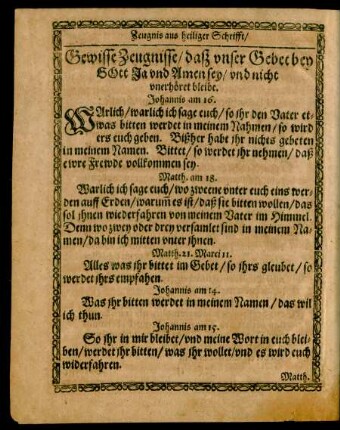 Zeugnis aus heiliger Schrifft/
Gewisse Zeugnisse/ daß vnser Gebet bey
GOtt Ja vnd Amen sey/ vnd nicht
vnerhöret bleibe.
Johannis am 16.
WArlich/ warlich ich sage euch/ so ihr den Vater et-
was bitten werdet in meinem Nahmen/ so wird
ers euch geben. Bißher habt ihr nichts gebeten
in meinem Namen. Bittet/ so werdet ihr nehmen/ daß
ewre Frewde vollkommen sey.
Matth. am 18.
Warlich ich sage euch/ wo zweene vnter euch eins wer-
den auff Erden/ warumb es ist/ daß sie bitten wollen/ das
sol jhnen wiederfahren von meinem Vater im Himmel.
Denn wo zwey oder drey versamlet sind in meinem Na-
men/ da bin ich mitten vnter ihnen.
Matth. 21. Marci 11.
Alles was ihr bittet im Gebet/ so ihrs gleubet/ so
werdet ihrs empfahen.
Johannis am 14.
Was ihr bitten werdet in meinem Namen/ das wil
ich thun.
Johannis am 15.
So ihr in mir bleibet/ vnd meine Wort in euch blei-
ben/ werdet ihr bitten/ was ihr wollet/ vnd es wird euch
widerfahren.
Matth.